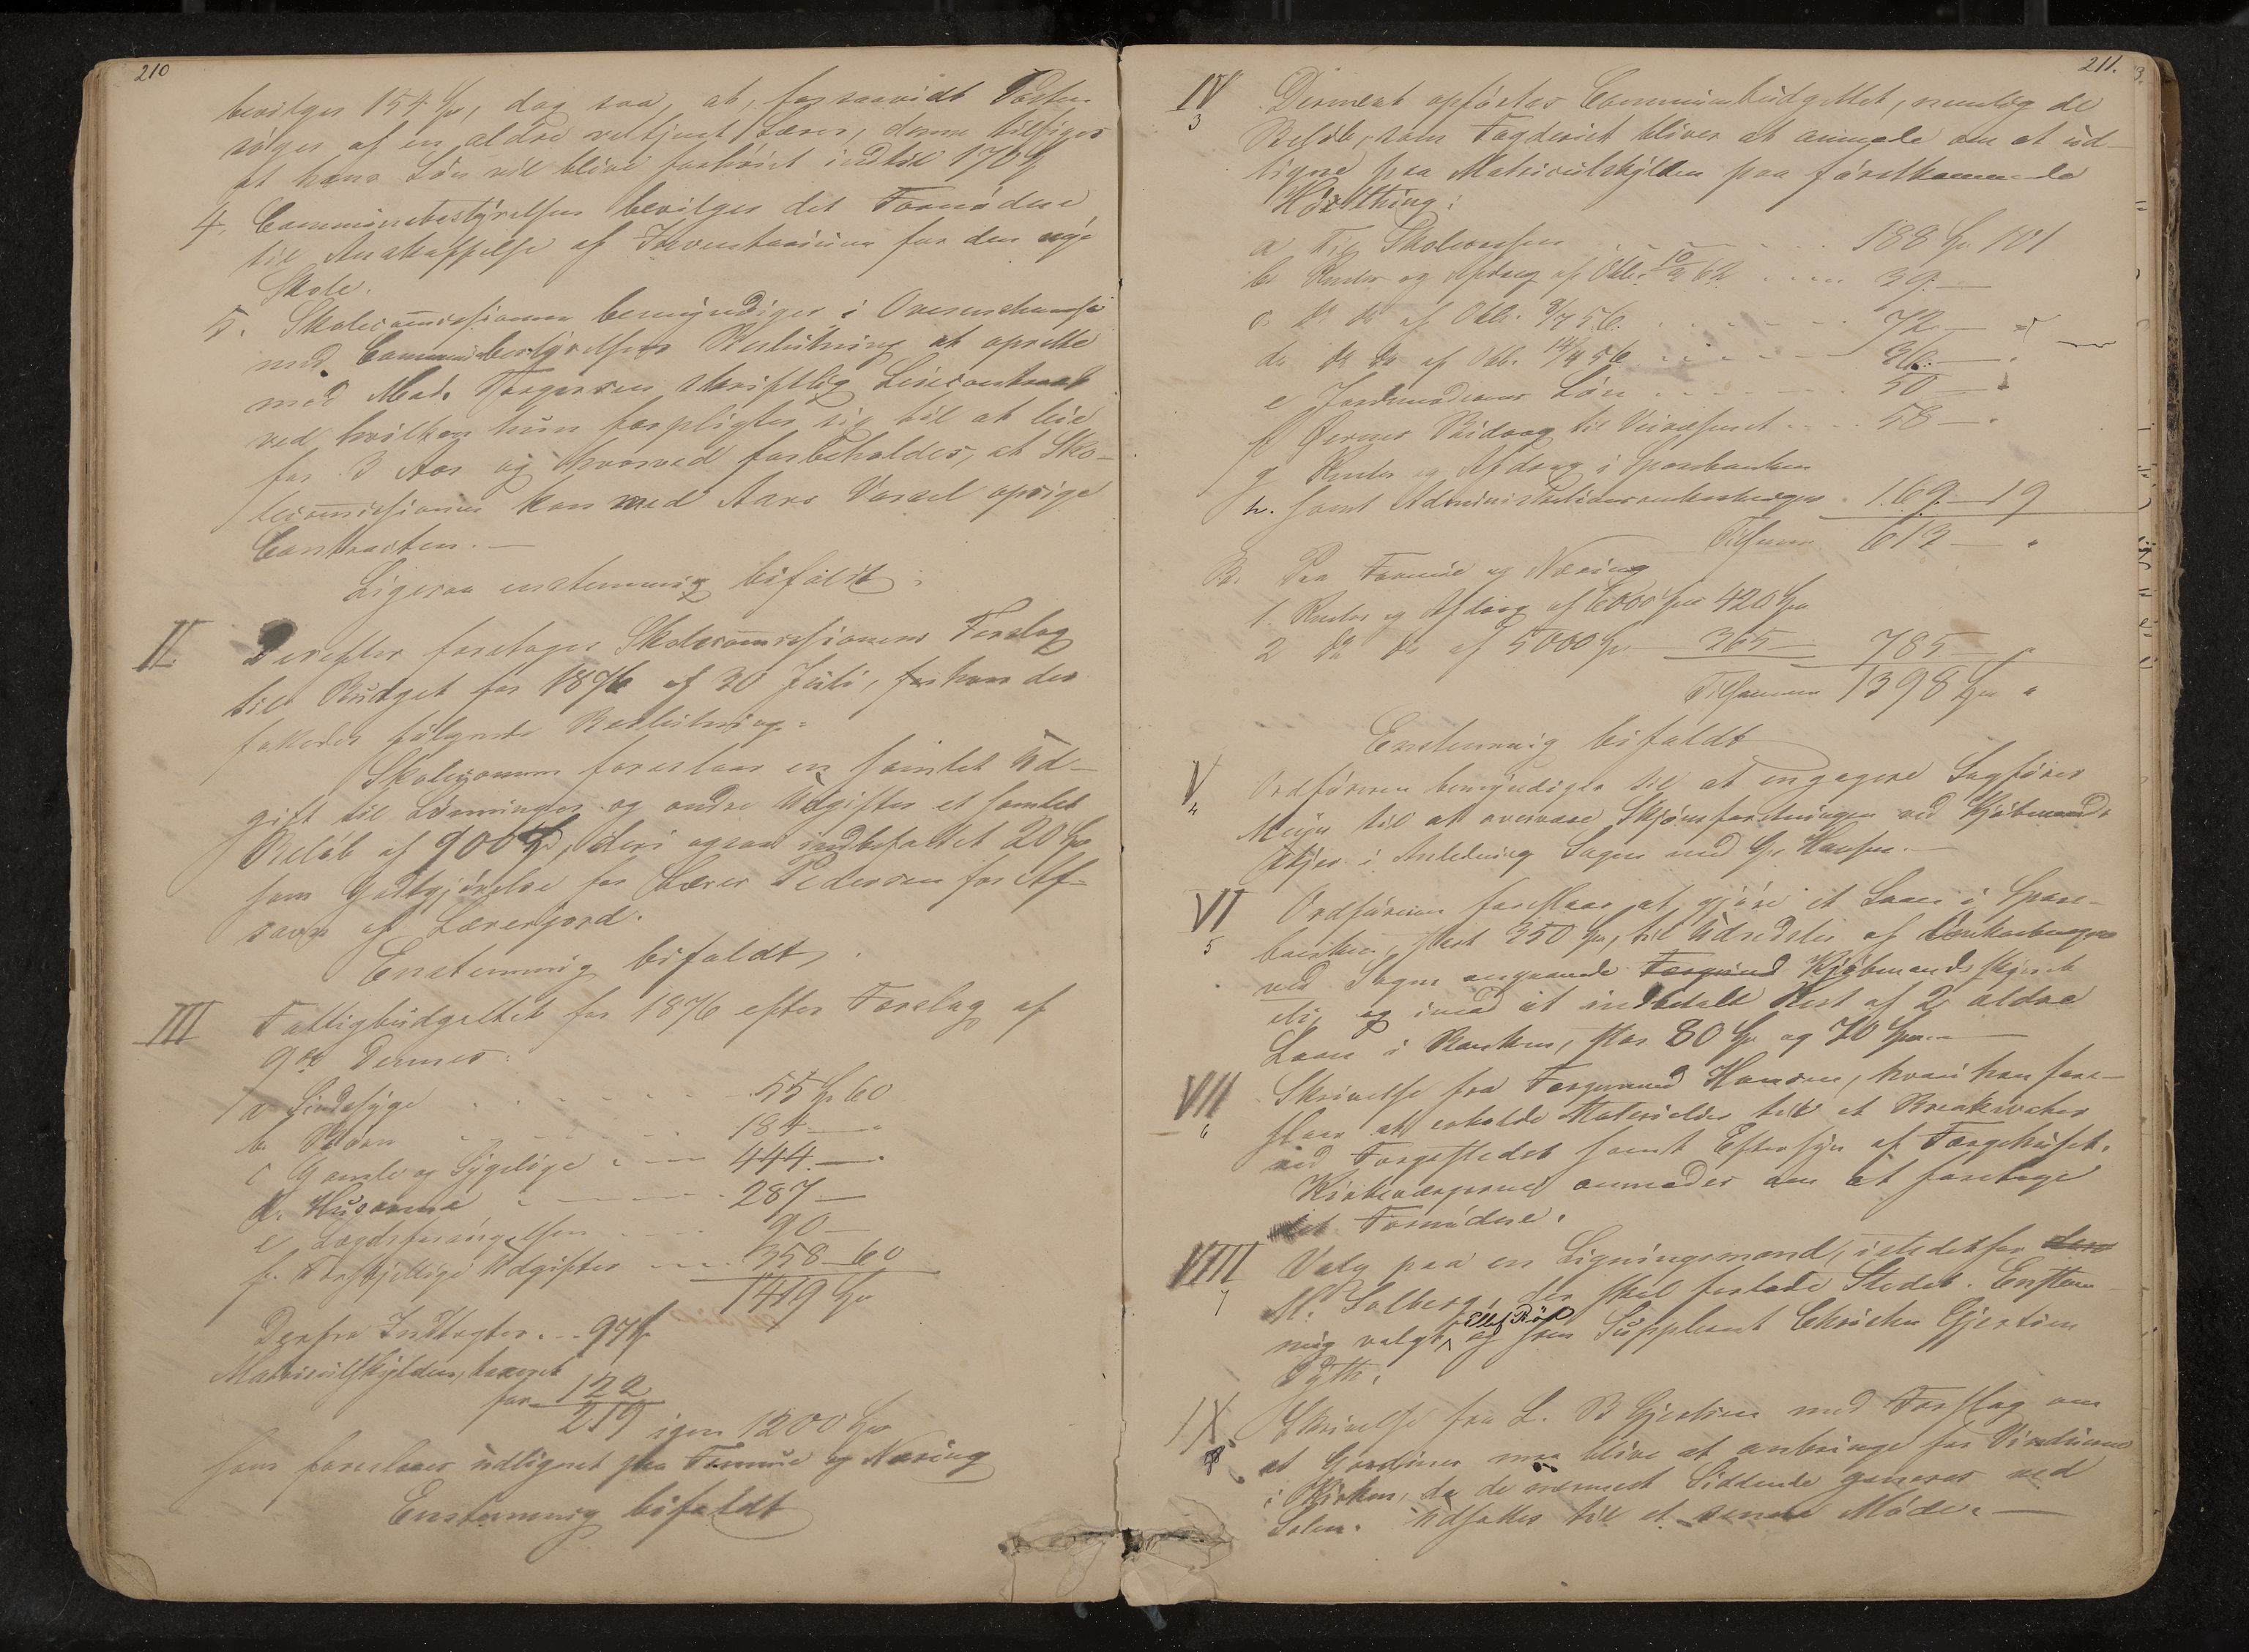 210
bevilges 154 Spd, dog saa, at, forsaavidt Posten
søges af en ældre veltjent Lærer, denne tilsiges
at hans Løn vil blive forhøiet indtil 170 Spd
4. Communebestyrelsen bevilger det Fornødne
til Anskaffelse af Inventarium for den nye
Skole.
5. Skolecommissionen bemyndiges i Overensstemmelse
med Communebestyrelsens Beslutning at oprette
med Mad. Torgersen skriftlig Leiecontract
ved hvilken hun forpligter sig til at leie
for 3 Aar og hvorved forbeholdes, at Sko-
lecommissionen kan med Aars Varsel opsige
Contracten.
Ligesaa enstemmig bifaldt.
II. Derefter foretoges Skolecommissionens Forslag
til Budget for 1876 af 30 Juli, hvorom der
fattedes følgende Beslutning:
Skolecomm foreslaar en samlet Ud-
gift til Lønninger og andre Udgifter et samlet
Beløb af 900 Spd, deri ogsaa indbefattet 20 Spd
som Godtgjørelse for Lærer Pedersen for Af-
savn af Lærerjord.
Enstemmig bifaldt.
III Fattigbudgettet for 1876 efter Forslag af
9de Dennes:
a Sindssyge 55 Sp 60
b. Børn 184 —
c Gamle og Sygelige 444. —
d. Husarme 287 —
e Lægdsforsørgelsen 90 —
f. Forskjellige Udgifter 358 — 60
1419 Spd
Derfra Indtægter 97 Sp
Matriculskylden, taxeret
for 122
219 igjen 1200 Spd
som foreslaaes udlignet paa Formue og Næring
Enstemmig bifaldt
211.
IV
3
Dernæst opførtes Communebudgettet, nemlig de
Beløb, som Fogderiet bliver at anmode om at ud-
ligne paa Matriculskylden paa førstkommende
Høstthing:
a Til Skolevæsen 188 Sp. 101
b Renter og Afdrag af Obl. 10/2 62 39. —
c. do do af Obl. 9/7 56. 72 —
d. do do af Obl. 14/4 56 36. —
e Jordemoderens Løn 50 —
f Øernes Bidrag til Veivæsenet 58 —
g Renter og Afdrag i Sparebanken
h. samt Administrationsomkostninger 169 — 19
Tilsammen 613 —
B. Paa Formue og Næring
1. Renter og Afdrag af 6000 Spd 420 Spd
2 do do af 5000 Sp — 365 — 785 —
Tilsammen 1398 Spd
Enstemmig bifaldt
V
4
Ordføreren bemyndiges til at engagere Sagfører
til at overvære Skjønsforretningen ved Kjøbmands
skjær i Anledning Sagen med Hansen. —
VI
5
Ordføreren foreslaar at gjøre et Laan i Spare-
banken, stort 350 Spd, til Udredelse af Omkostninger
ved Sagen angaaende Kjøbmandsskjæret
etc, og imod at indbetale Rest af 2 ældre
Laan i Banken, stor 80 Sp og 70 Spd. —
VII
6
Skrivelse fra Færgemand Hansen, hvori han fore-
slaar at erholde Materialier til et Breakwater
ved Færgestedet samt Eftersyn af Færgehuset.
Kirkeværgerne anmodes om at foretage
det Fornødne.
VIII
7
Valg paa en Ligningsmand, istedetfor
M. Solberg, der skal forlade Stedet. Enstem-
mig valgt Ellef Röd og som Suppleant Christen Gjertsen
Dyth.
IX.
8
Skrivelse fra L. B Gjertsen med Forslag om
at Gardiner maa blive at anbringe for Vinduerne
i Kirken, da de nærmest Siddende generes ved
Solen. Udsattes til et senere Møde. —